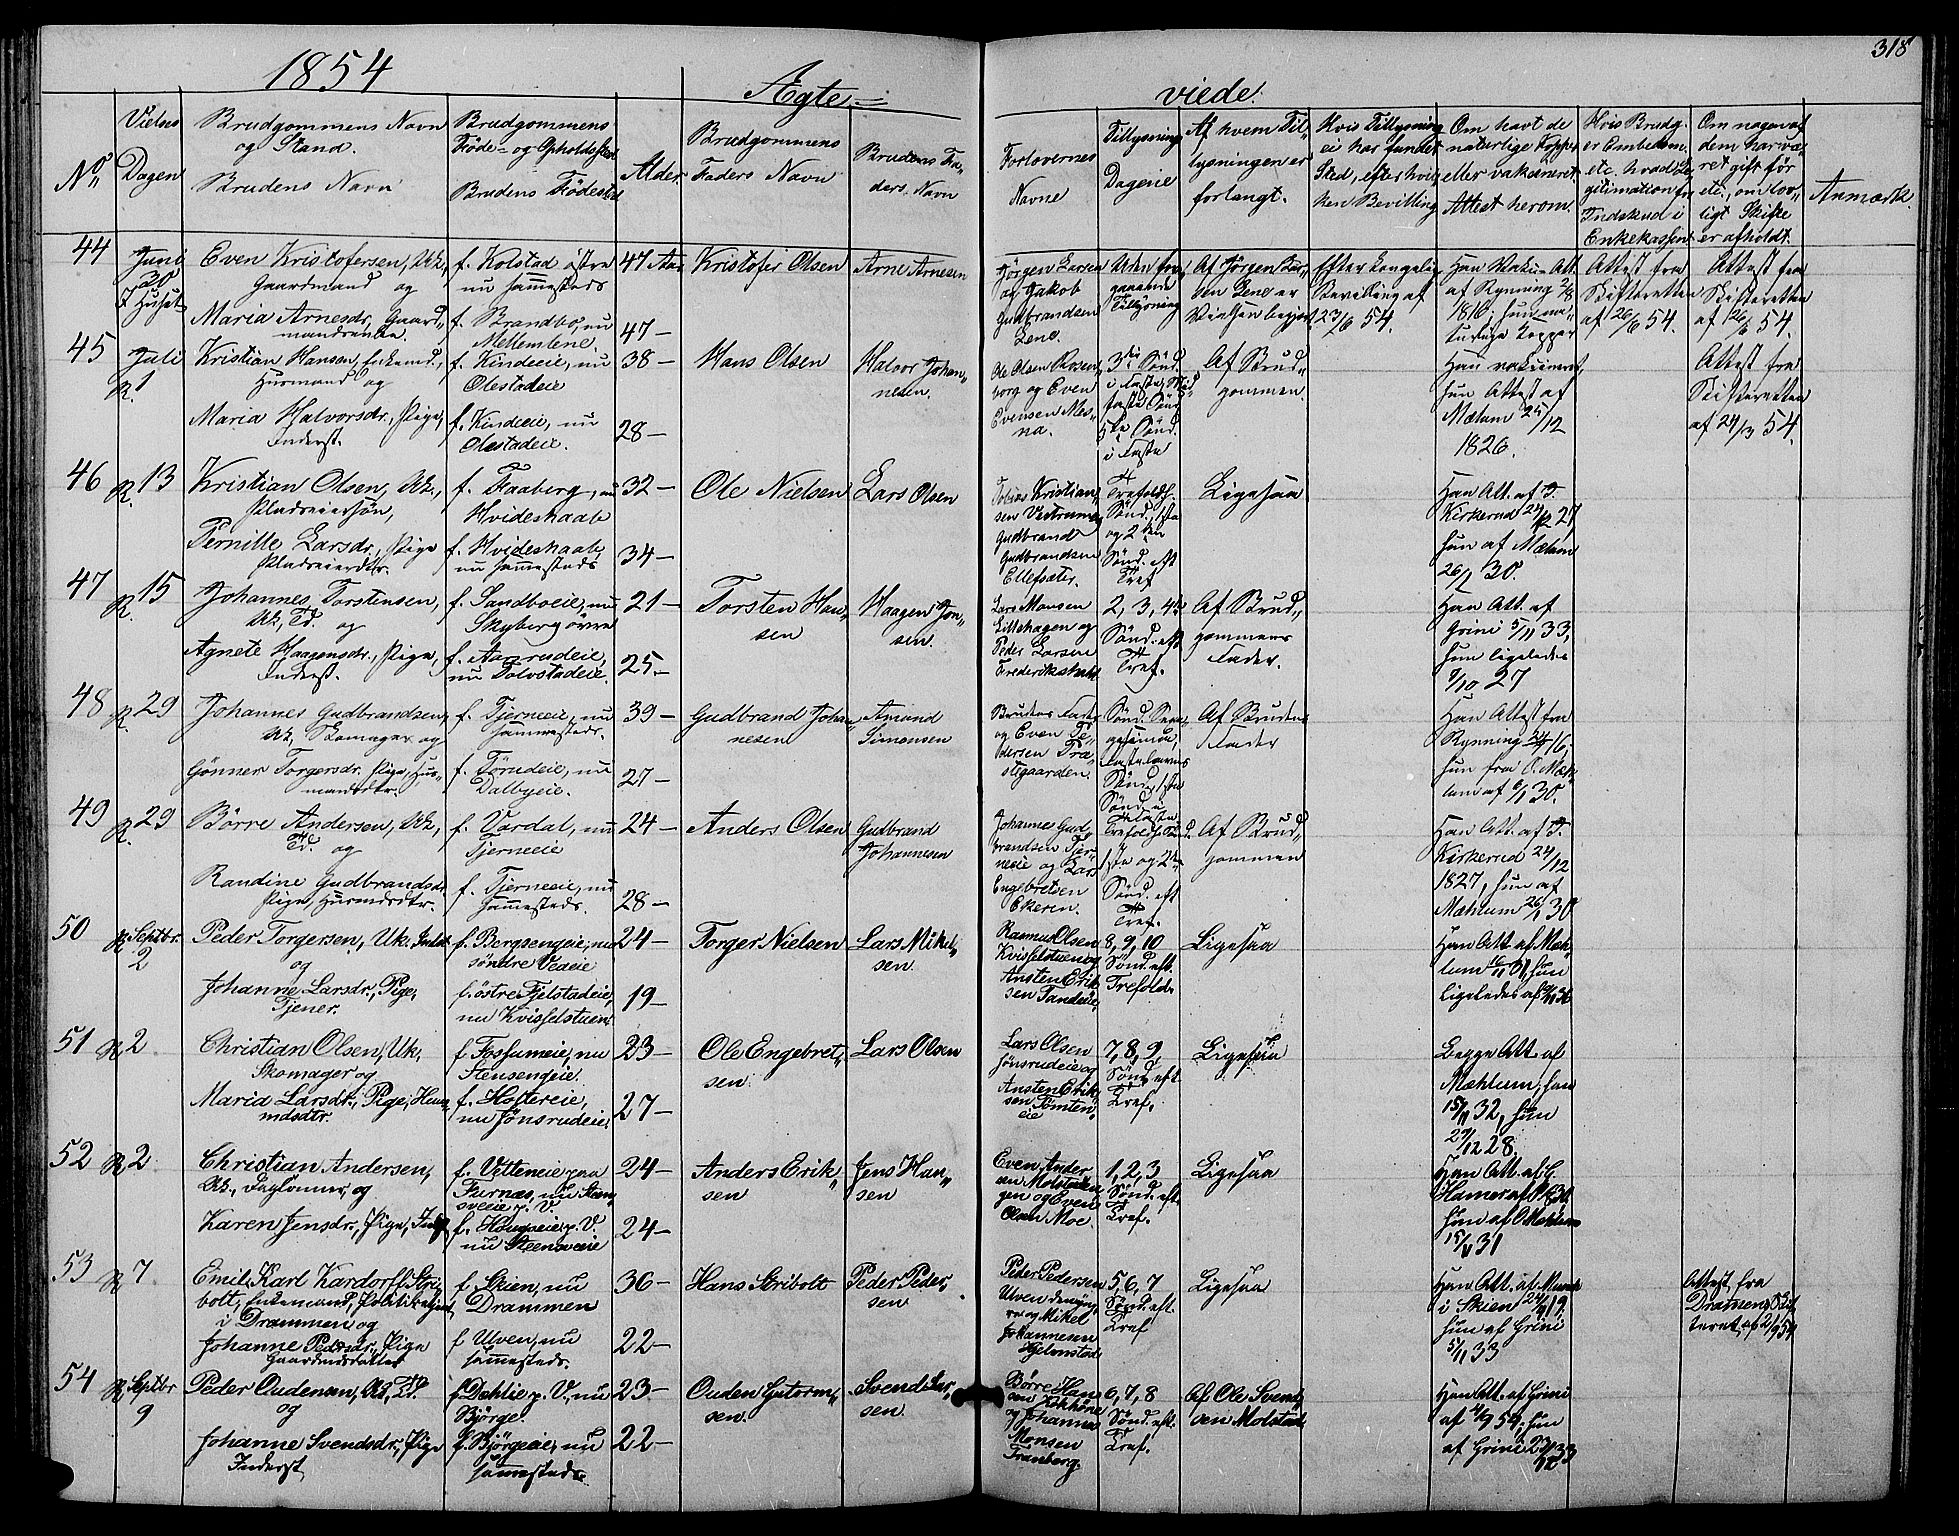 1854
Ægte=
viede.
318
No
Vielses
Dagen
Brudgommens Navn
og Stand.
Brudens Navn
Brudgommens
Føde= og Opholdssted
Brudens Fødested
Alder
Brudgommens
Faders Navn
Brudens Fa-
ders. Navn
Forlovernes
Navne
Tillysning
Dagene
Af hvem Til-
lysningen er
forlangt.
Hvis Tillysning
ei har fundet
Sted, efter hvil-
ken Bevilling
Om havt de
naturlige Kopper
eller vakcineret.
Attest herom.
Hvis Brudg.
er Embedsm.
etc. hvad Le-
gitimation for
Indskud i
Enkekassen
Om nogen af
dem har væ-
ret gift før
etc., om lov-
ligt Skifte
er afholdt.
Anmærk.
44
Juni
30
I Huset
Even Kristofersen, Uk.,
Gaardmand og
Maria Arnesdr, Gaard-
mandsenke.
f. Kolstad østre
nu Sammesteds
f. Brandbo, nu
Mellemlene.
47 Aar
47 —
Kristofer Olsen
Arne Arnesen
Jørgen Larsen
og Jakob
Gudbrandsen
Lene.
Uden fore-
gaaende
Tillysning
Af Jørgen Lar-
sen Lene er
Vielsen begjert
Efter kongelig
Bevilling af
23/6 54.
Han Vakc. Att.
af Rynning 2/8
1816, hun na-
turlige Kopper
Attest fra
Skifteretten
af 26/6 54.
Attest fra
Skifteretten
af 26/6 54.
45
Juli
R. 1
Kristian Hansen, Enkemd.,
Husmand og
Maria Halvorsdr., Pige,
Inderst.
f. Kindeeie, nu
Olestadeie
f. Kindeeie, nu
Olestadeie.
38 —
28 —
Hans Olsen
Halvor Johan-
nesen.
Ole Olsen Rosen-
borg og Even
Evensen Mes-
na.
3die Sønd.
i Faste, Mid-
faste Sønd.
5te Sønd.
i Faste
Af Brud-
gommen.
Han vakcineret,
hun Attest af
Mælum 25/12
1826.
Attest fra
Skifteretten
af 24/3 54.
46
R. 13
Kristian Olsen, Uk.,
Pladseiersøn,
Pernille Larsdr., Pige
Pladseierdtr.
f. Faaberg, nu
Hvideskaab
f. Hvideskaab,
nu Sammesteds
32 —
34 —
Ole Nielsen
Lars Olsen
Tobias Kristian-
sen Vestrum
Gudbrand
Gudbrandsen
Ellefsæter.
Trefoldh.
Sønd., 1ste
og 2den
Sønd. eft.
Tref
Ligesaa
Han Att. af P.
Kirkerud 24/12 27
hun af Mælum
26/1 30.
47
R. 15
Johannes Torstensen,
Uk., Td. og
Agnete Haagensdr., Pige,
Inderst.
f. Sandboeie, nu
Skyberg øvre
f. Aamrudeie,
nu Tolvstadeie.
21 —
25 —
Torsten Han-
sen
Haagen Jon-
sen.
Lars Monsen
Lillehagen og
Peder Larsen
Frederikskaab
2, 3, 4de
Sønd. eft.
Tref.
Af Brud-
gommens
Fader.
Han Att. af
Grini 5/11 33,
hun ligeledes
9/10 27
48
R. 29
Johannes Gudbrandsen,
Uk, Skomager og
Gønner Torgersdr. Pige, Hus-
mandsdtr.
f. Tjerneeie, nu
Sammesteds.
f. Tørudeie, nu
Dalbyeie.
39 —
27 —
Gudbrand Johan-
nesen
Amund
Simensen
Brudens Fader
og Even Pe-
dersen Præ-
stegaarden.
Af Brudens
Fader
Han Attest fra
Rynning 24/7 16.
hun fra O. Mæh-
lum af 6/1 30.
49
R. 29
Børre Andersen, Uk.,
Td. og
Randine Gudbrandsd.
Pige, Husmdsdtr.
f. Vardal, nu
Tjerneeie
f. Tjerneeie, nu
Sammesteds.
24 —
28 —
Anders Olsen
Gudbrand
Johannesen
Johannes Gud-
brandsen Tjer-
neeie og Lars
Engebretsen
Ekeren.
Trefoldh. Sønd.
1ste og 2den
Sønd. eft
Tref.
Af Brud-
gommen
Han Att. af P.
Kirkerud 24/12
1827, hun af
Mæhlum 26/1 30
50
R Septbr.
2
Peder Torgersen, Uk. Inderst
og
Johanne Larsdr., Pige,
Tjener.
f. Bergsengeie, nu
søndre Vedeie
f. østre Fjelstadeie,
nu Kvisselstuen.
24 —
19 —
Torger Nielsen
Lars Mikel-
sen.
Rasmus Olsen
Kvisselstuen og
Ansten Erik-
sen Tandeie.
8, 9, 10
Sønd. eft.
Trefold.
Ligesaa
Han Att. af Mæh-
lum 16/11 31, hun
ligeledes af 9/11 36
51
R 2
Christian Olsen, Uk.
Skomager og
Maria Larsdr., Pige, Huus-
mdsdtr.
f. Fossumeie, nu
Stensengeie.
f. Hoftereie,
nu Jønsrudeie.
23 —
27 —
Ole Engebret-
sen.
Lars Olsen
Lars Olsen
Jønsrudeie og
Ansten Erik-
sen Tomten-
eie
7, 8, 9,
Sønd. eft.
Tref.
Ligesaa
Begge Att. af
Mæhlum, han
15/11 32, hun
29/12 28.
52
R 2
Christian Andersen,
Uk., Daglønner, og
Karen Jensdr., Pige, Inderst
f. Vetteneie paa
Furnæs, nu Steen-
sveeie p. V.
nu Steensveeie
24 —
24 —
Anders Erik-
sen
Jens Han-
sen
Even Ander
sen Molstadeen-
gen og Even
Olsen Moe.
1, 2, 3
Sønd. eft.
Tref.
Ligesaa
hun af O Mæhlum
15/11 31
53
R 7
Emil Karl Kardorff Stri-
bolt, Enkemand, Politibetjent
i Drammen og
Johanne Pedersdr., Pige
Gaardmdsdatter
f. Skien, nu
Drammen
f Ulven, nu
Sammesteds.
36 —
22 —
Hans Stribolt
Peder Peder-
sen
Peder Pedersen
Ulven den yn-
re og Mikel
Johannesen
Hjelmstad
5, 6, 7
Sønd. eft.
Tref
Ligesaa
i Skien 24/9 19.
hun af Grini
5/11 33
Attest fra
Dramens Skif-
teret af 2/9 54
54
R Septbr
9
Peder Oudensen, Uk., Td.
og
Johanne Svendsdr., Pige
Inderst
f. Dæhlie p. V., nu
Bjørge.
f. Bjørgeeie, nu
Sammesteds.
23 —
22 —
Ouden Guttorm-
sen.
Svend Lar-
sen.
Børre Han
og Johannes
Monsen
Tranberg.
6, 7, 8
Sønd. eft.
Tref.
Af Ole Svend-
sen Molstad
Han Att. af Grini
af 4/9 54, hun
af Grini 23/12 33